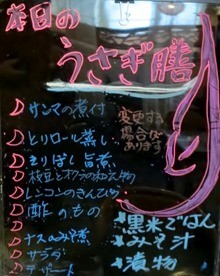 本日の
うさぎ膳
サンマの煮付
とりロール蒸し
えりぼし旨煮
枝豆とオクラの和え物
レンコンのきんぴら
酢のもの
ナスのみそ煮
サラダ
デザート
変更する
場合が
あります
黒米ごはん
みそ汁
漬物